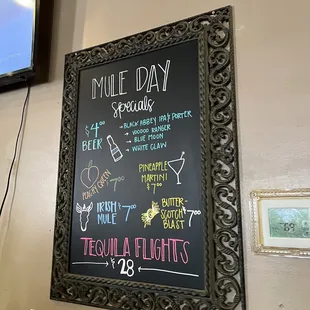 MULE DAY
specials
$4.00
BEER
→ BLACK ABBEY IPA & PORTER
→ VOODOO RANGER
→ BLUE MOON
→ WHITE CLAW
PEACHY QUEEN $7.00
PINEAPPLE
MARTINI
$7.00
IRISH $7.00
MULE
BUTTER-
SCOTCH $7.00
BLAST
TEQUILA FLIGHTS
$28